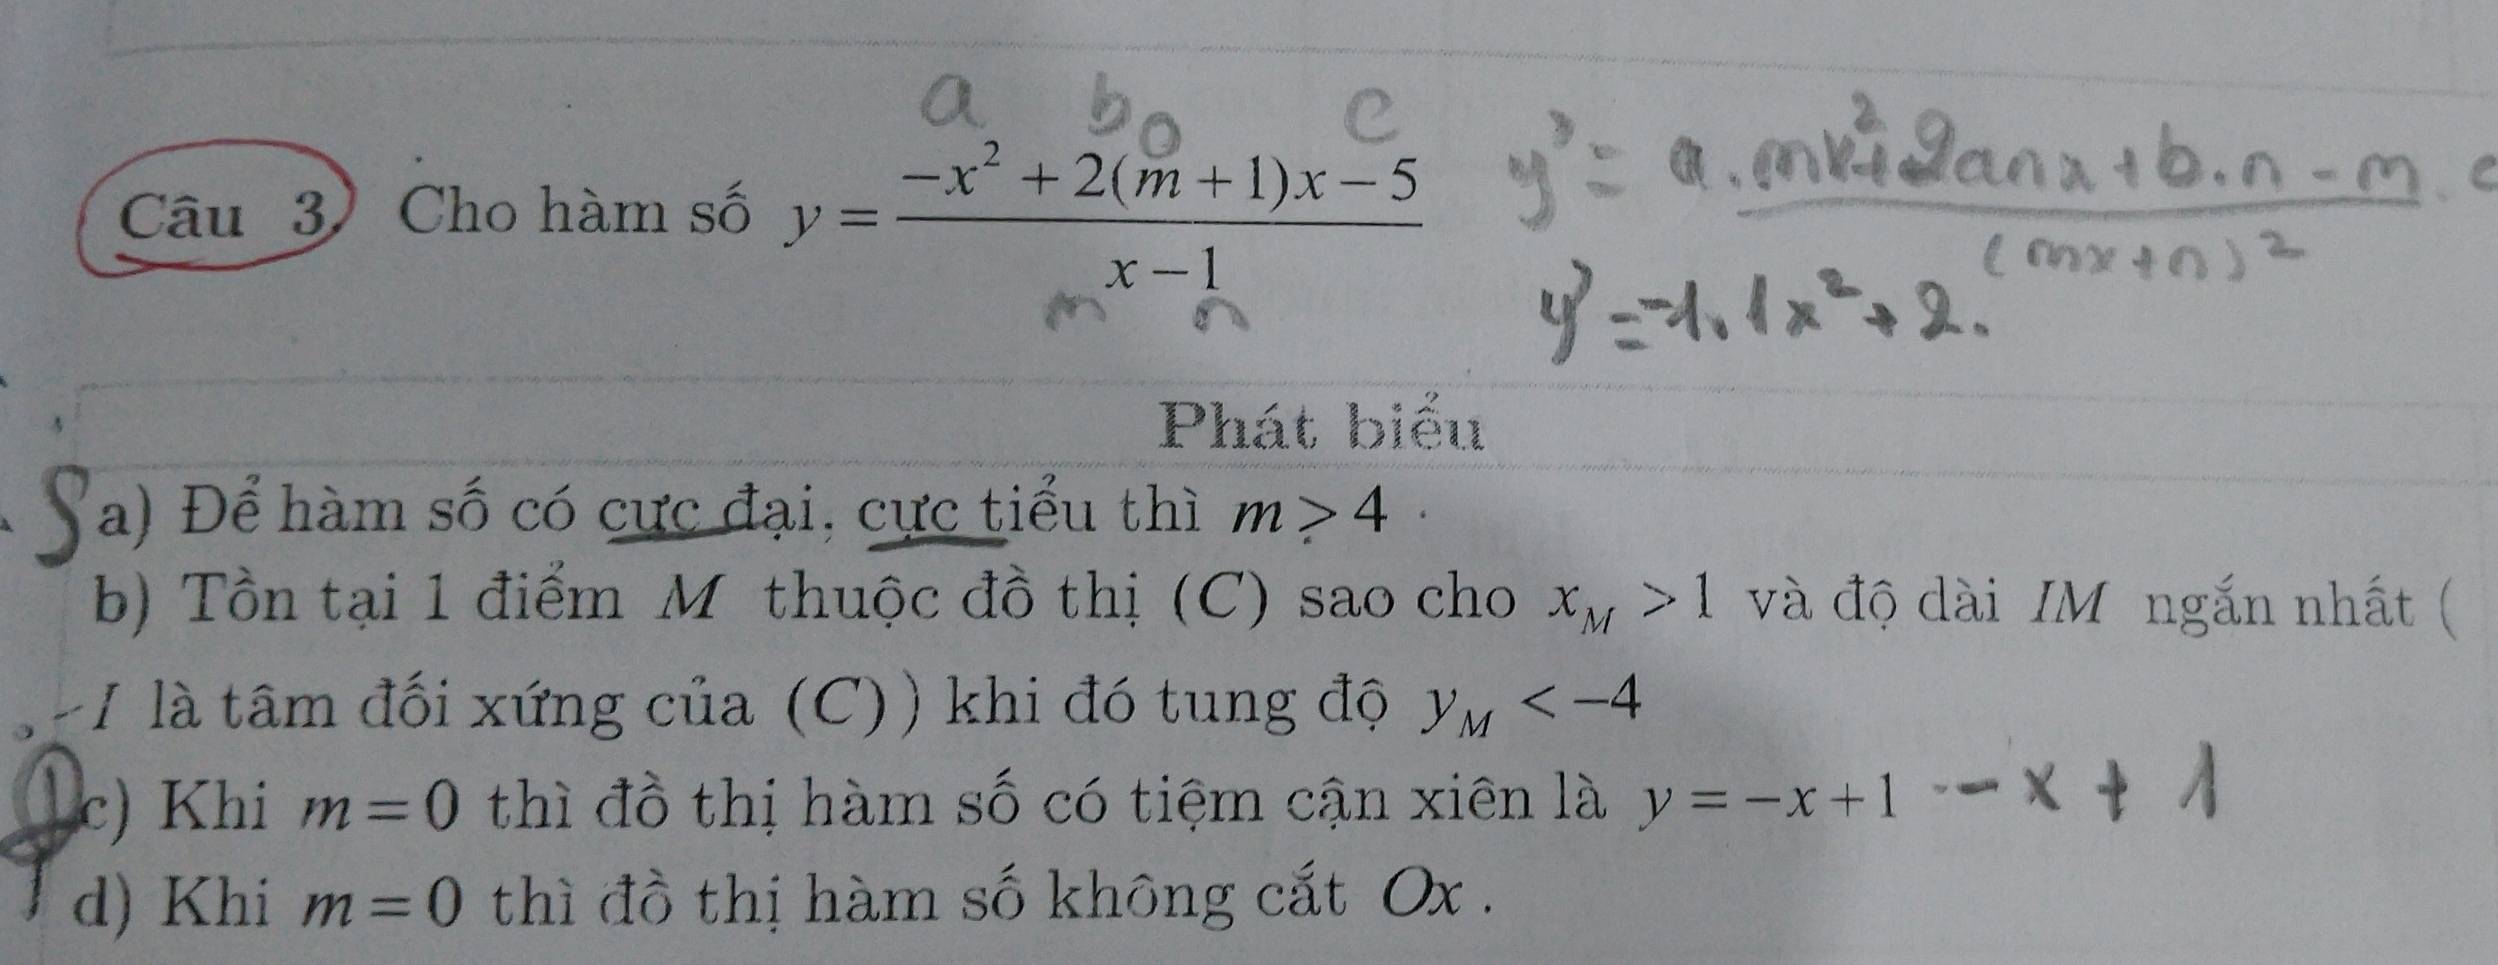 a b 0 c
Câu 3, Cho hàm số y = (-x² + 2(m + 1)x - 5) / (x - 1)
m n
y' = (a.mx² + 2anx + b.n - m.c) / (mx + n)²
y' = -1.1x² + 2.
Phát biểu
S a) Để hàm số có cực đại, cực tiểu thì m > 4.
b) Tồn tại 1 điểm M thuộc đồ thị (C) sao cho x_M > 1 và độ dài IM ngắn nhất (
I là tâm đối xứng của (C)) khi đó tung độ y_M < -4
c) Khi m = 0 thì đồ thị hàm số có tiệm cận xiên là y = -x + 1 -x + 1
d) Khi m = 0 thì đồ thị hàm số không cắt Ox.